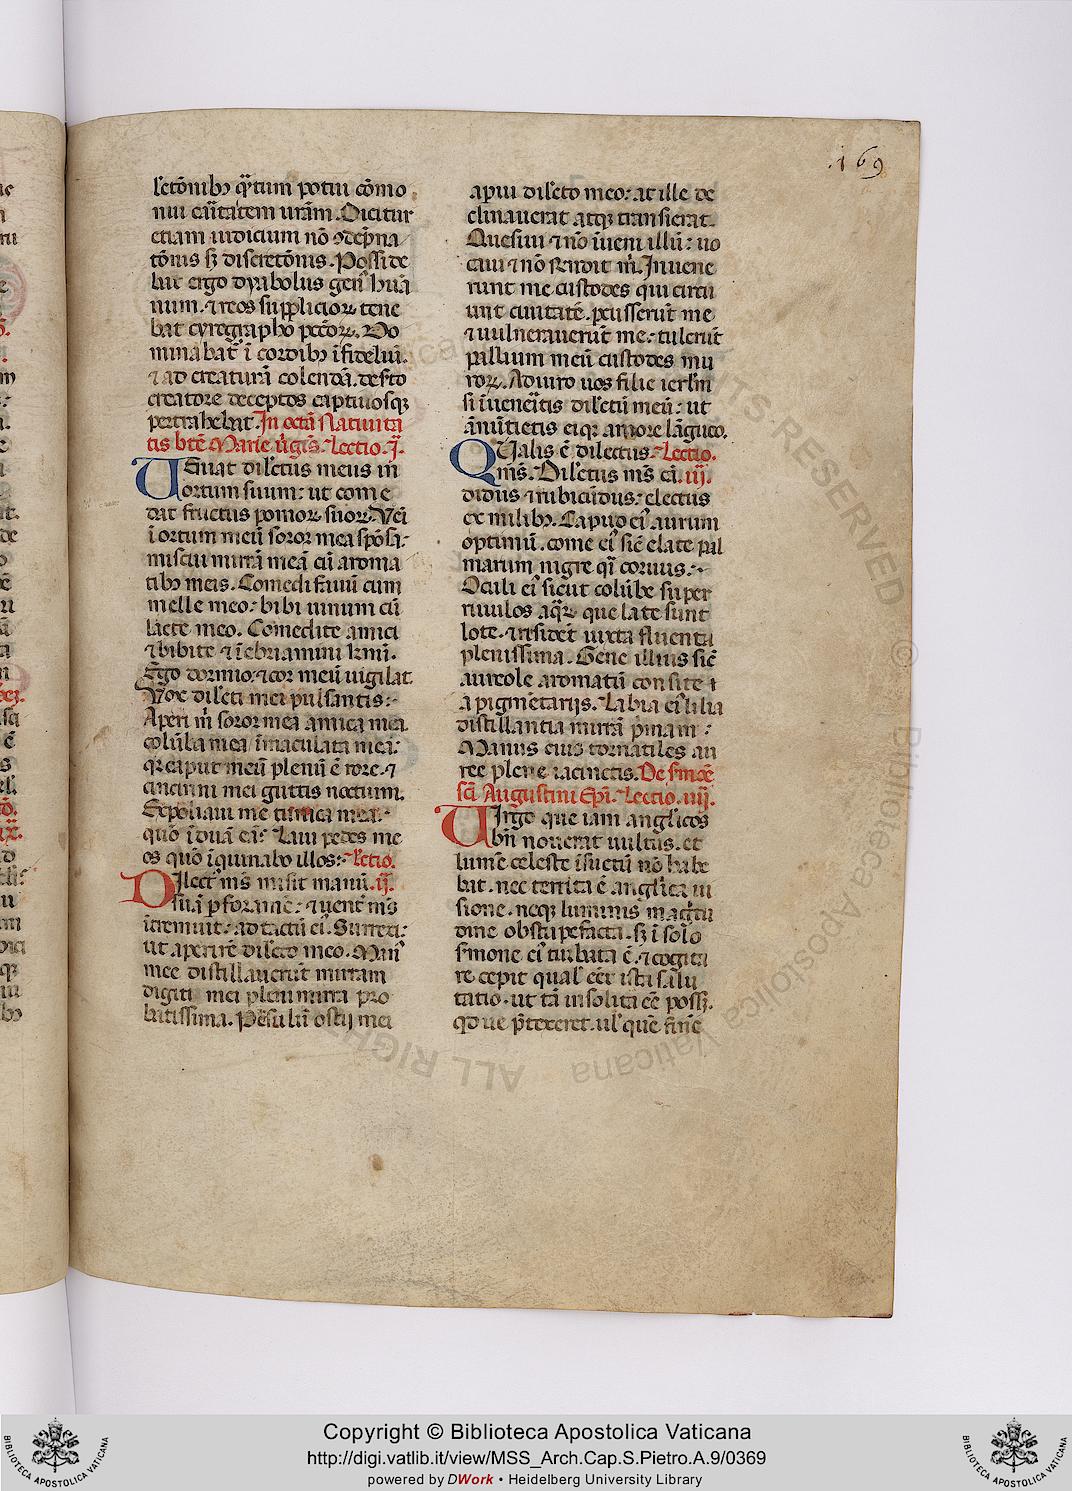 .169
lẽctōnibꝫ q̄rtum potui cōmo
nui caritatem ur̄am. Dicitur
etiam iudicium nō ɔdep̄na
tōnis sꝫ discretōnis. Posside
bat ergo dyabolus gen' hūa
num. ⁊ reos supplicioꝝ tene
bat cyrographo pctōꝝ. Do
minabat ī cordibꝫ īfideliū.
⁊ ad creaturā colendā. desto
creatore deceptos captiuosqꝫ
pertrahebat. In octā Natiuita
tis btē Marie uirgīs. Lectio. j̄.
UEniat dilc̄tus meus in
ortum suum: ut come
dat fructus pomoꝝ suoꝝ. Veī
ī ortum meū soror mea spōsa:
miscui mirrā meā cū aroma
tibꝫ meis. Comedi fauū cum
melle meo: bibi uinum cū
lacte meo. Comedite amici
⁊ bibite ⁊ īebriamini kmī.
Ego dormio: ⁊ cor meū uigilat.
Vox dilc̄ti mei pulsantis:
Aperi m̄ soror mea amica mea.
colūba mea īmaculata mea:
qꝛ caput meū plenū ē rore. ⁊
cincinni mei guttis noctium.
Expoliaui me tunica mea:
quō īduā eā: Laui pedes me
os quō īquinabo illos: Lectio.
DIlect' m̄s misit manū. ij.
suā p foramē: ⁊ uent' m̄s
ītremuit: ad tactū eī. Surrexi:
ut aperirē dilc̄to meo. Man'
mee distillauerūt mirram
digiti mei pleni mirra pro
batissima. Pēsulū ostij mei
aperui dilc̄to meo: at ille de
clinauerat atqꝫ transierat.
Quesiui ⁊ nō īueni illū: uo
caui ⁊ nō rn̄dit m̄. Inuene
runt me custodes qui circu
unt ciuitatē. ꝑcusserūt me
⁊ uulnerauerūt me: tulerūt
pallium meū custodes mu
roꝝ. Adiuro uos filie ierlm̄
si īueneritis dilc̄tū meū: ut
ānūtietis ei qꝛ amore lāgueo.
QUalis ē dilectus. Lectio.
m̄s. Dilc̄tus m̄s cā. iij.
didus ⁊ rubicūdus: electus
ex milibꝫ. Caput eī aurum
optimū. come eī sic̄ elate pal
marum nigre qī coruus:
Oculi eī sicut colūbe super
riuulos aqꝝ que late sunt
lote. ⁊ resident iuxta fluenta
plenissima. Gene illius sic̄
aureole aromatū consite
a pigmētarijs. Labia eī lilia
distillantia mirrā pimam:
Manus eius tornatiles au
ree plene iacinctis. De smōe
scī Augustini Epī. Lectio. iiij.
UIrgo que iam anglicos
bn̄ nouerat uultus. et
lumē celeste īsuetū nō habe
bat. nec territa ē anglica ui
sione. neqꝫ luminis magitu
dine obstupefacta. sꝫ ī solo
smone eī turbata ē. ⁊ cogita
re cepit qual' eēt ista salu
tatio. ut tā insolita eē possꝫ.
Copyright © Biblioteca Apostolica Vaticana
http://digi.vatlib.it/view/MSS_Arch.Cap.S.Pietro.A.9/0369
powered by DWork • Heidelberg University Library